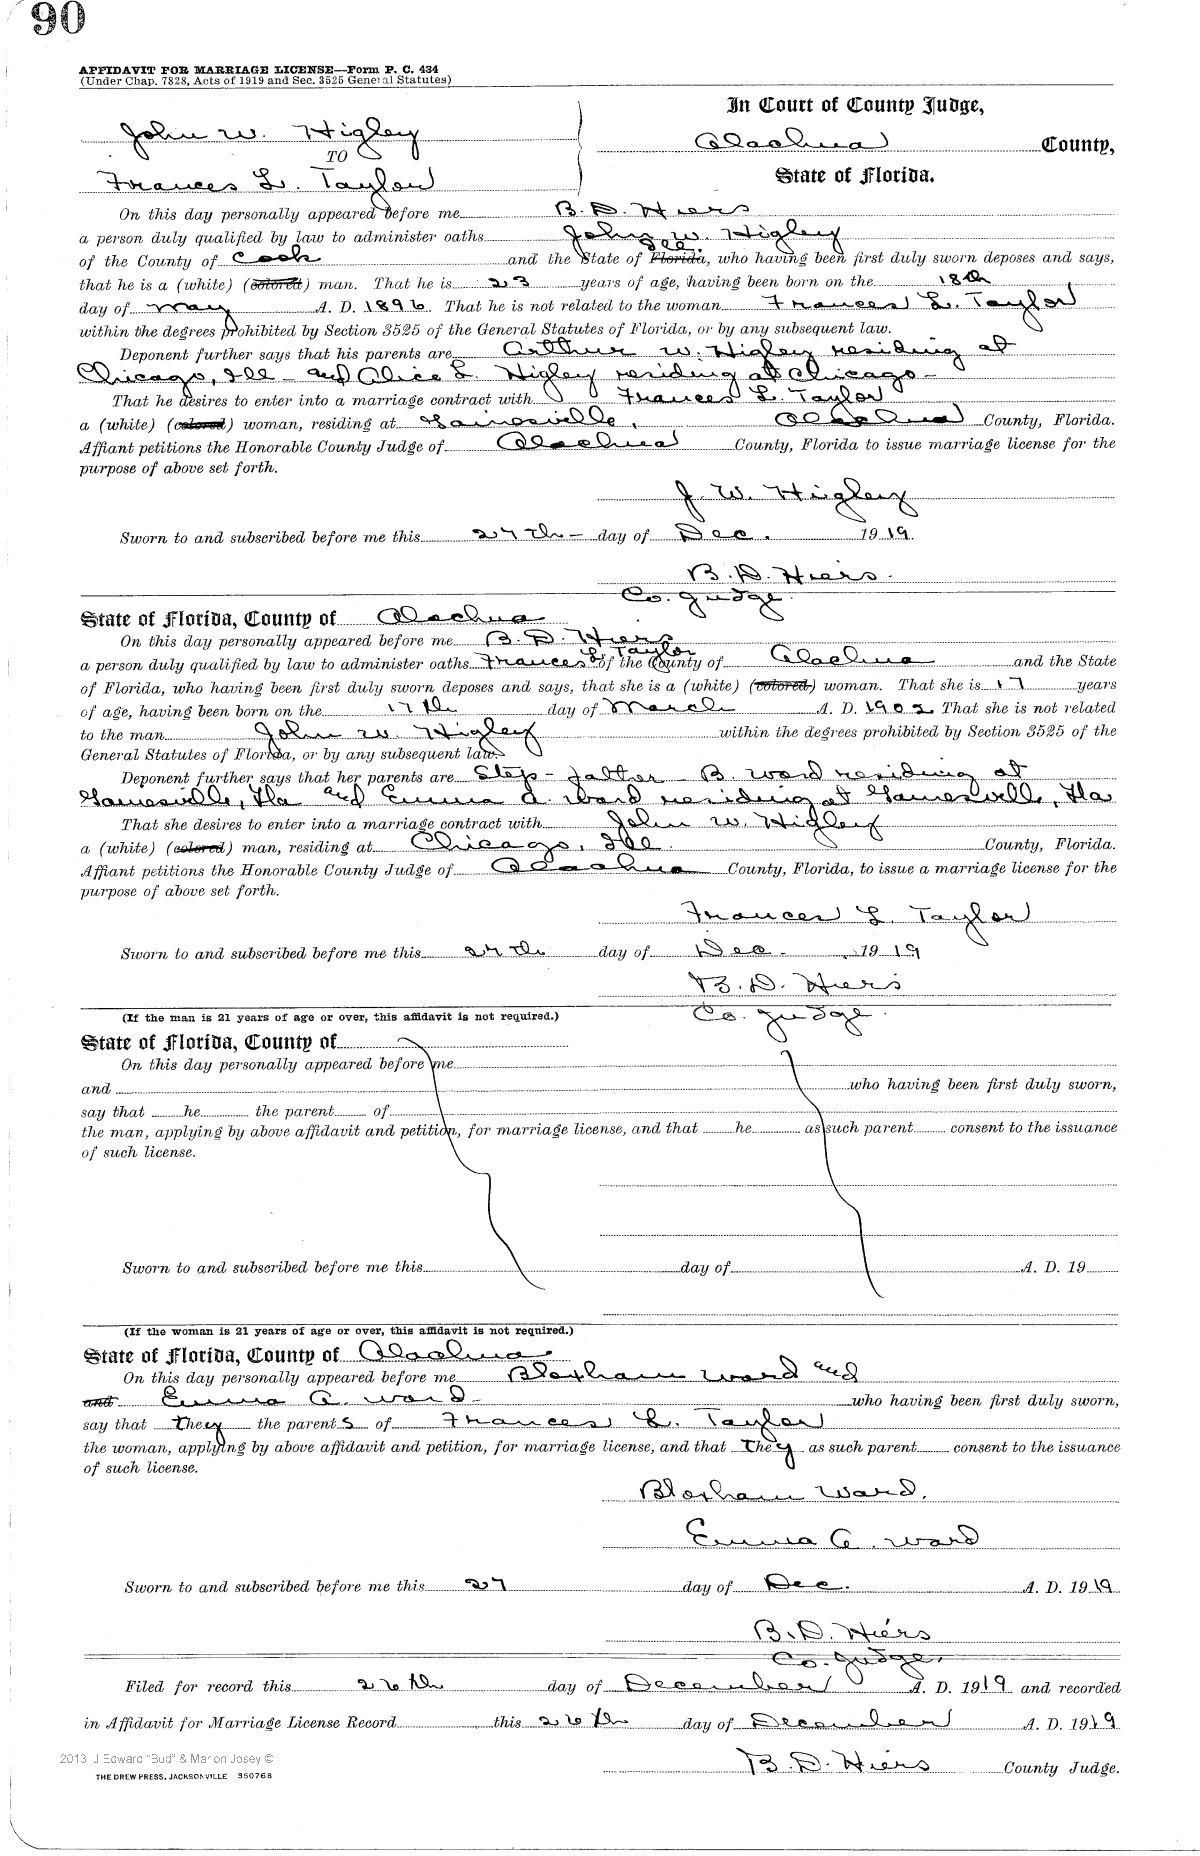 90
AFFIDAVIT FOR MARRIAGE LICENSE—Form P. C. 434
(Under Chap. 7828, Acts of 1919 and Sec. 3525 General Statutes)
In Court of County Judge,
John W. Higley
Alachua County,
TO
State of Florida.
Frances L. Taylor
On this day personally appeared before me B. D. Hiers
a person duly qualified by law to administer oaths John W. Higley
Ill.
of the County of Cook and the State of Florida, who having been first duly sworn deposes and says,
that he is a (white) (colored) man. That he is 23 years of age, having been born on the 18th
day of May A. D. 1896 That he is not related to the woman Frances L. Taylor
within the degrees prohibited by Section 3525 of the General Statutes of Florida, or by any subsequent law.
Deponent further says that his parents are Arthur W. Higley residing at
Chicago, Ill - and Alice L. Higley residing at Chicago -
That he desires to enter into a marriage contract with Frances L. Taylor
a (white) (colored) woman, residing at Gainesville, Alachua County, Florida.
Affiant petitions the Honorable County Judge of Alachua County, Florida to issue marriage license for the
purpose of above set forth.
J. W. Higley
Sworn to and subscribed before me this 27th - day of Dec. 1919.
B. D. Hiers.
Co. Judge.
State of Florida, County of Alachua
On this day personally appeared before me B. D. Hiers
a person duly qualified by law to administer oaths Frances L. Taylor of the County of Alachua and the State
of Florida, who having been first duly sworn deposes and says, that she is a (white) (colored) woman. That she is 17 years
of age, having been born on the 17th day of March A. D. 1902 That she is not related
to the man John W. Higley within the degrees prohibited by Section 3525 of the
General Statutes of Florida, or by any subsequent law.
Deponent further says that her parents are Step-father - B. Ward residing at
Gainesville, Fla and Emma A. Ward residing at Gainesville, Fla
That she desires to enter into a marriage contract with John W. Higley
a (white) (colored) man, residing at Chicago, Ill. County, Florida.
Affiant petitions the Honorable County Judge of Alachua County, Florida, to issue a marriage license for the
purpose of above set forth.
Frances L. Taylor
Sworn to and subscribed before me this 27th day of Dec. 1919
B. D. Hiers
Co. Judge.
(If the man is 21 years of age or over, this affidavit is not required.)
State of Florida, County of
On this day personally appeared before me
and who having been first duly sworn,
say that he the parent of
the man, applying by above affidavit and petition, for marriage license, and that he as such parent consent to the issuance
of such license.
Sworn to and subscribed before me this day of A. D. 19
(If the woman is 21 years of age or over, this affidavit is not required.)
State of Florida, County of Alachua
On this day personally appeared before me Bloxham Ward and
and Emma A. Ward - who having been first duly sworn,
say that they the parents of Frances L. Taylor
the woman, applying by above affidavit and petition, for marriage license, and that they as such parent consent to the issuance
of such license.
Bloxham Ward.
Emma A. Ward
Sworn to and subscribed before me this 27 day of Dec. A. D. 1919
B. D. Hiers
Co. Judge.
Filed for record this 26th day of December A. D. 1919 and recorded
in Affidavit for Marriage License Record this 26th day of December A. D. 1919
2013 J Edward "Bud" & Marion Josey ©
B. D. Hiers County Judge.
THE DREW PRESS, JACKSONVILLE 350768